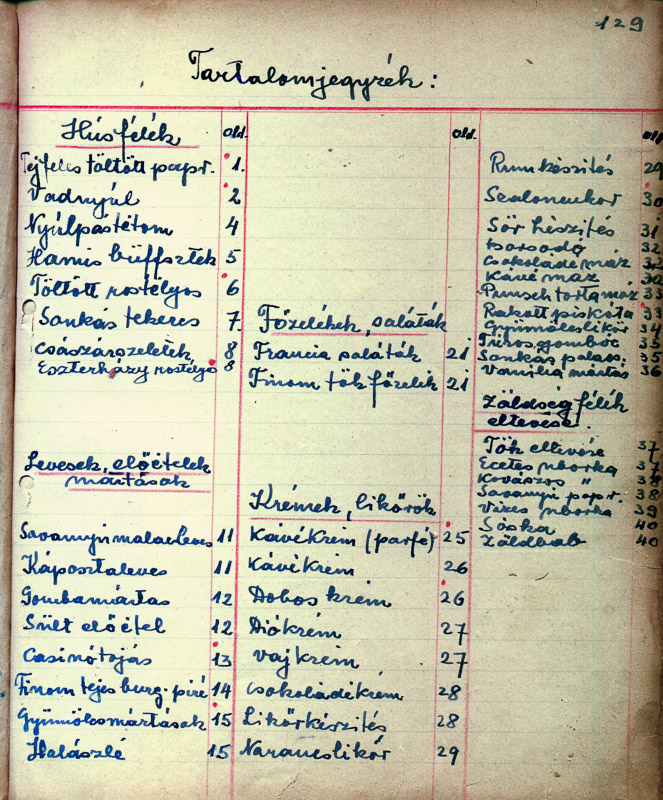 129
Tartalomjegyzék:
Húsfélék old.
Tejfeles töltött papr. 1.
Vadnyúl 2
Nyúlpástétom 4
Hamis büffsztek 5
Töltött rostélyos 6
Sonkás tekercs 7.
Császárszeletek 8
Eszterházy rostélyos 8
Levesek, előételek
mártások
Savanyú malacleves 11
Káposztaleves 11
Gombamártas 12
Sült előétel 12
Casinótojás 13
Finom tejes burg. piré 14
Gyümölcsmártások 15
Halászlé 15
old.
Főzelékek, saláták
Francia saláták 21
Finom tökfőzelék 21
Krémek, likőrök
Kávékrém (parfé) 25
Kávékrém 26
Dobos krém 26
Diókrém 27
Vajkrém 27
Csokoládékrém 28
Likőrkészítés 28
Narancslikőr 29
old
Rumkészítés 29
Szaloncukor 30
Sör készítés 31
Borsodó 32
Csokoládé máz 32
Kávé máz 32
Punsch torta máz 33
Rakott piskóta 33
Gyümölcslikőr 34
Túrós gombóc 35
Sonkás palacs. 35
Vanilia mártás 36
Zöldség félék
eltevése.
Tök eltevése 37
Ecetes uborka 37
Kovászos " 38
Savanyú papr. 38
Vizes uborka 39
Sóska 40
Zöldbab 40